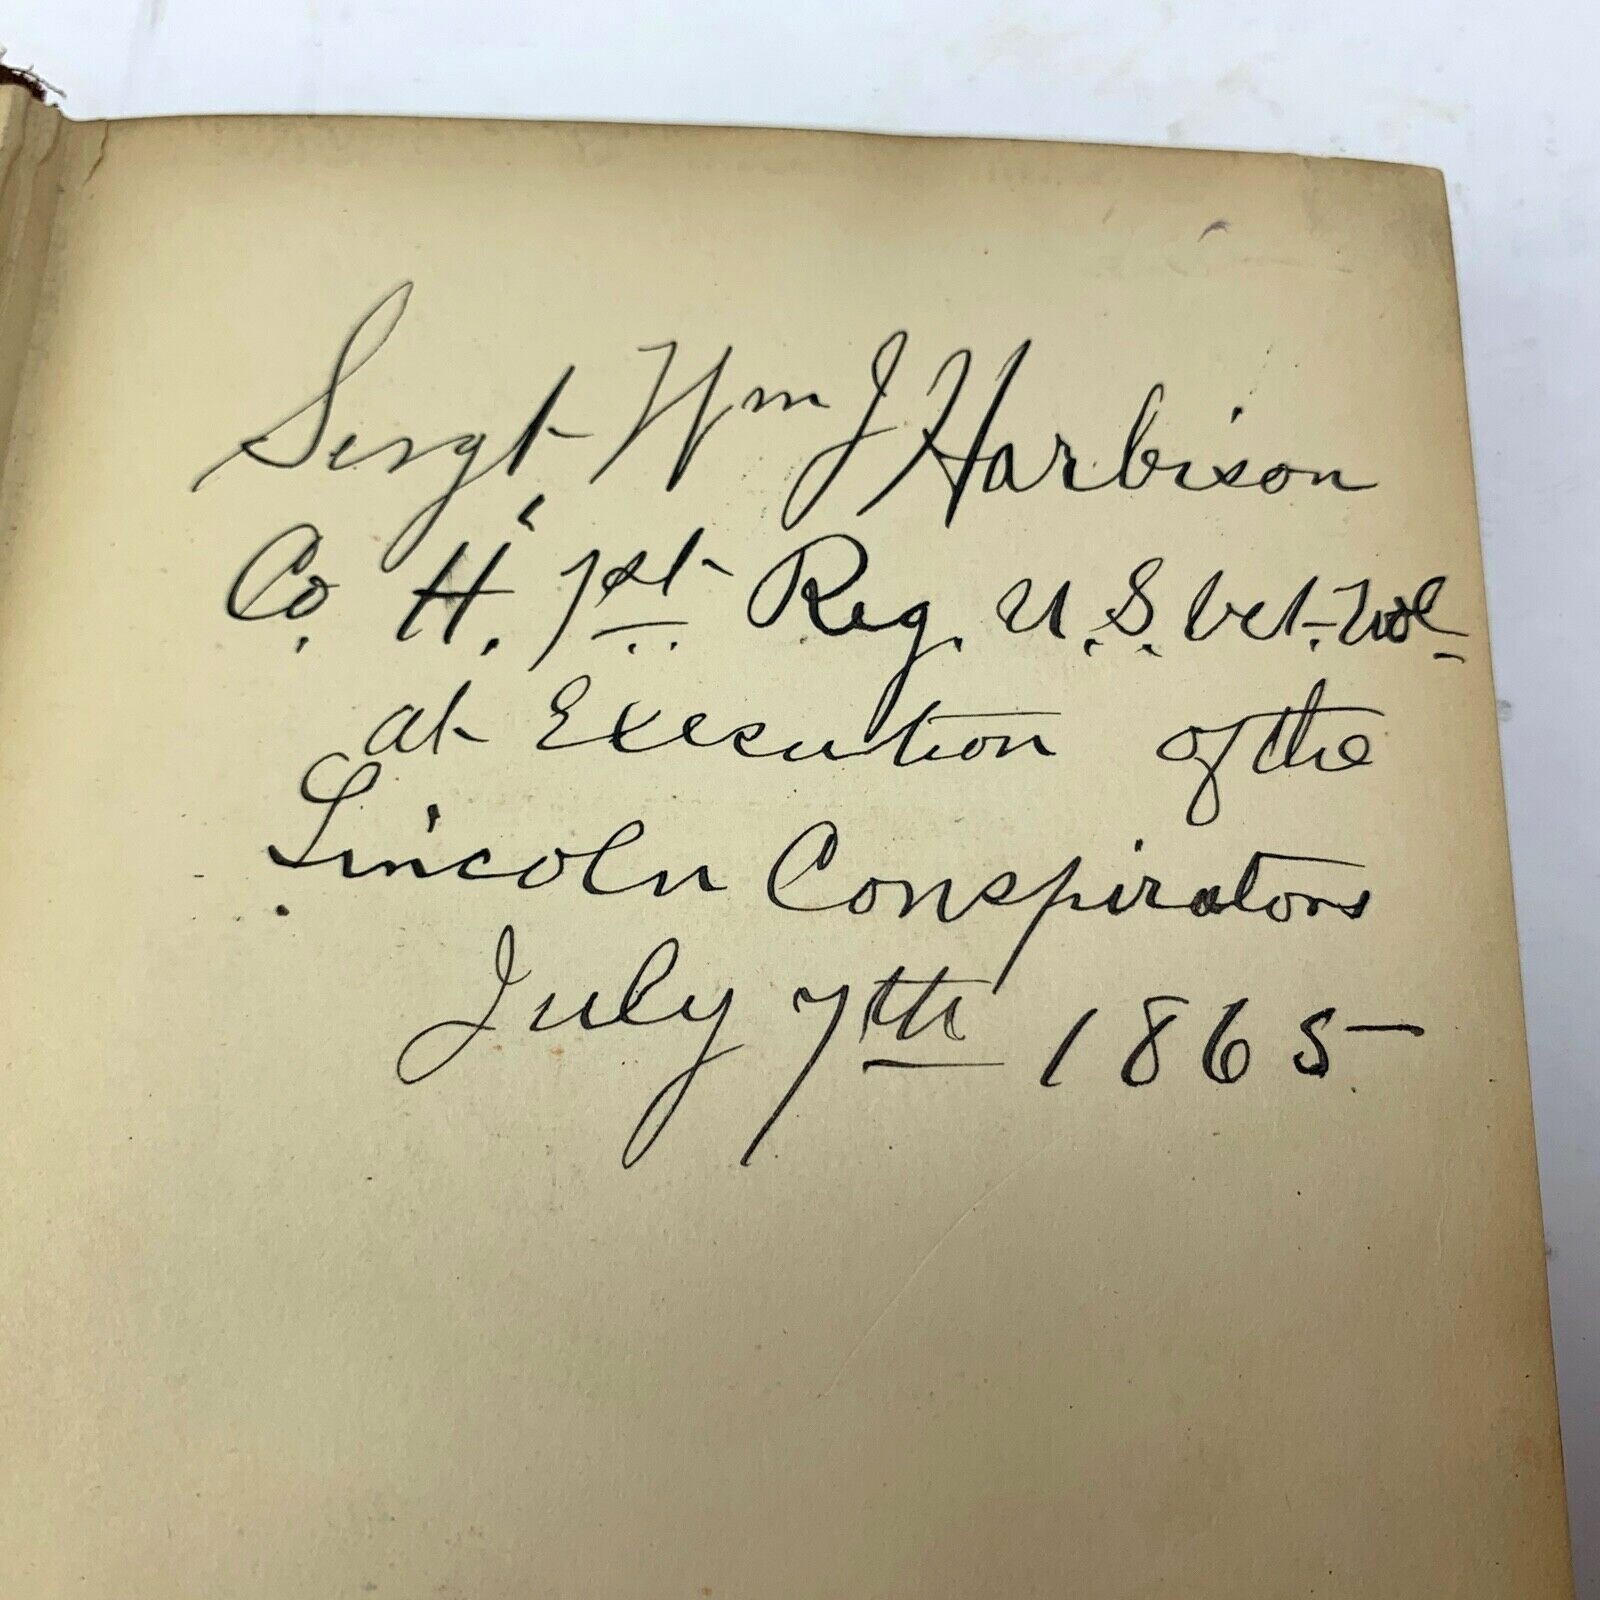 Sergt Wm J Harbison
Co. H. 1st Reg. U.S. Vet. Vol
at Execution of the
Lincoln Conspirators
July 7th 1865